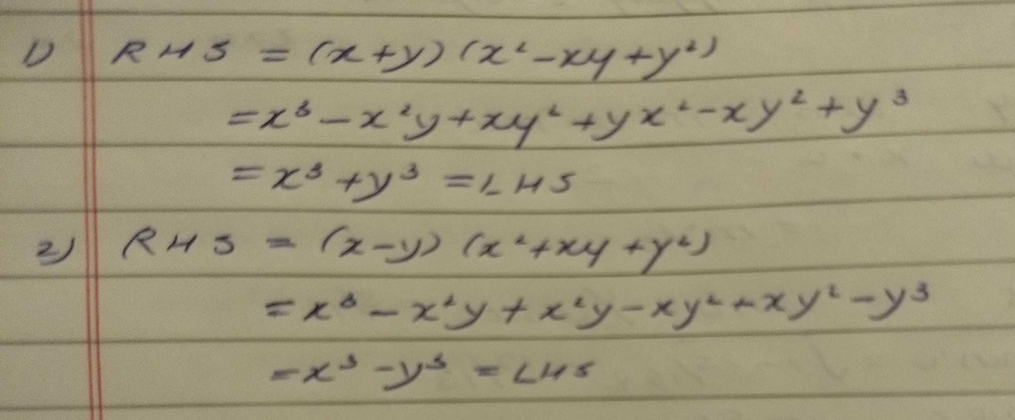 1) RHS = (x+y) (x²-xy+y²)
= x³ - x²y + xy² + yx² - xy² + y³
= x³ + y³ = LHS
2) RHS = (x-y) (x²+xy+y²)
= x³ - x²y + x²y - xy² + xy² - y³
= x³ - y³ = LHS